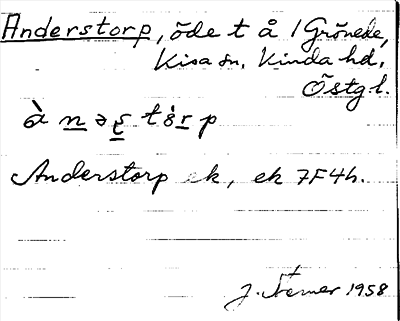 Anderstorp, öde t å 1 Grönede,
Kisa sn, Kinda hd,
Östgl.
Anderstorp ek, ek 7F4h.
1958